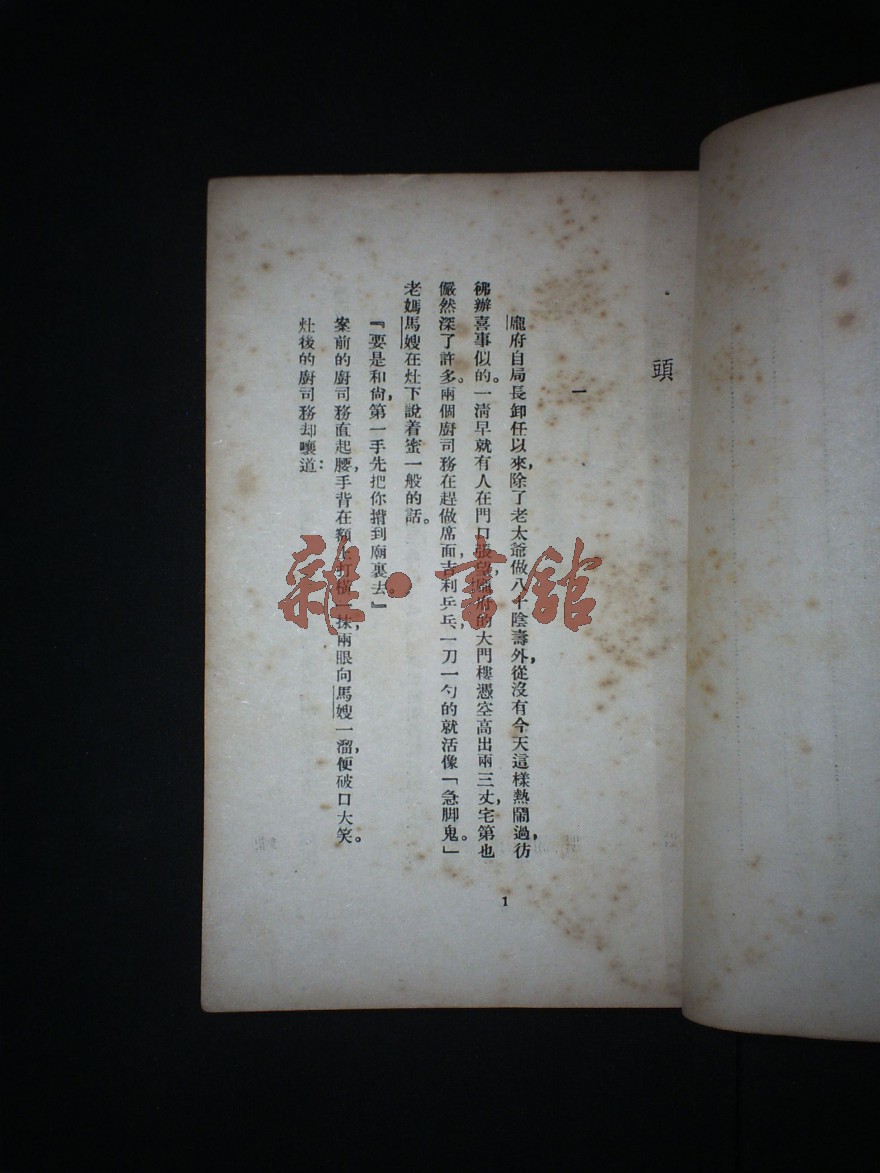 頭
一
龐府自局長卸任以來，除了老太爺做八十陰壽外，從沒有今天這樣熱鬧過，彷
彿辦喜事似的。一清早就有人在門口張望，龐府的大門樓憑空高出兩三丈，宅第也
儼然深了許多。兩個廚司務在趕做席面，吉利乒乓，一刀一勺的就活像「急脚鬼。」
老媽馬嫂在灶下說着蜜一般的話。
『要是和尙，第一手先把你揹到廟裏去。』
案前的廚司務直起腰，手背在額上打橫一抹，兩眼向馬嫂一溜，便破口大笑。
灶後的廚司務却嚷道：
1
雜·書館